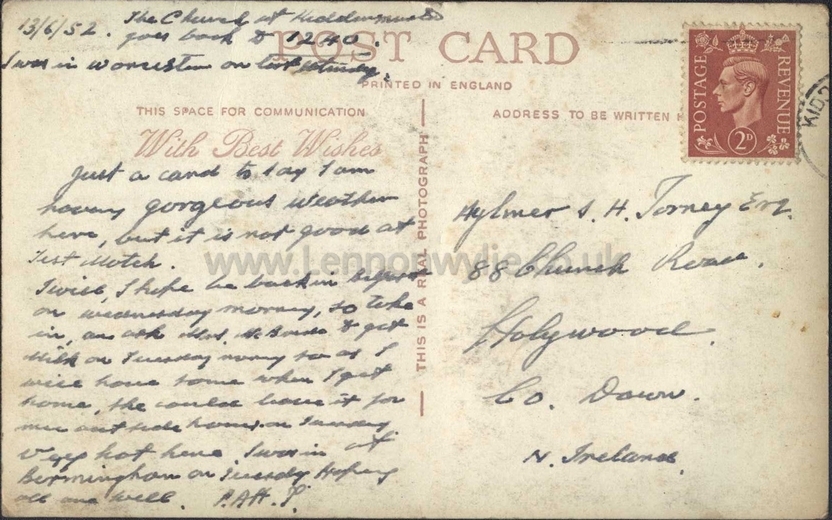 13/6/52. The Church at Kidderminster
goes back to 1240.
I was in Worcester on last
POST CARD
PRINTED IN ENGLAND
THIS SPACE FOR COMMUNICATION
ADDRESS TO BE WRITTEN H
With Best Wishes
Just a card to say I am
having gorgeous weather
here, but it is not good at
Test Match.
I will, I hope be back in Belfast
on Wednesday morning, so take
in, an ask Mrs. McBride to get
milk on Tuesday so as I
will have some when I get
home, she could leave it for
me outside home on Tuesday
Very hot here. I was in at
Bermingham on Tuesday Hoping
all are well.
THIS IS A REAL PHOTOGRAPH
Aylmer S. H. Torney Esq.
88 Church Road.
Holywood.
Co. Down.
N. Ireland.
POSTAGE
REVENUE
2D
KIDD
www.Lennonwylie.co.uk